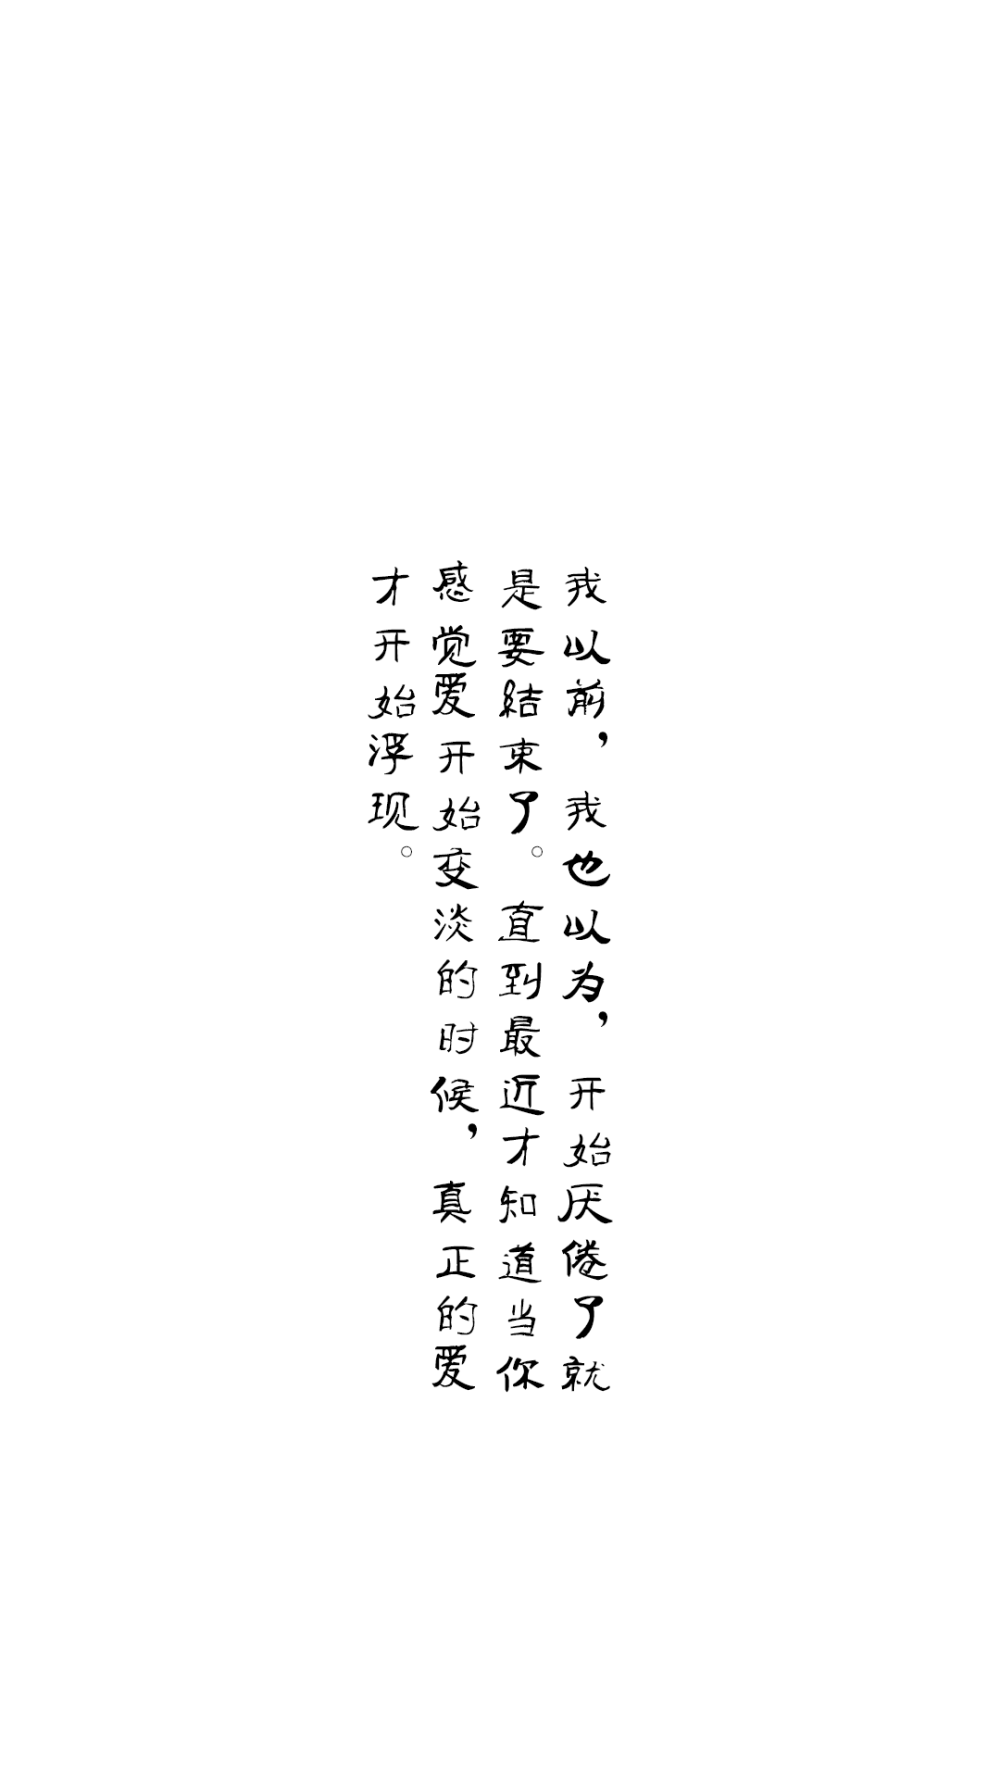 我以前，我也以为，开始厌倦了就
是要结束了。直到最近才知道当你
感觉爱开始变淡的时候，真正的爱
才开始浮现。